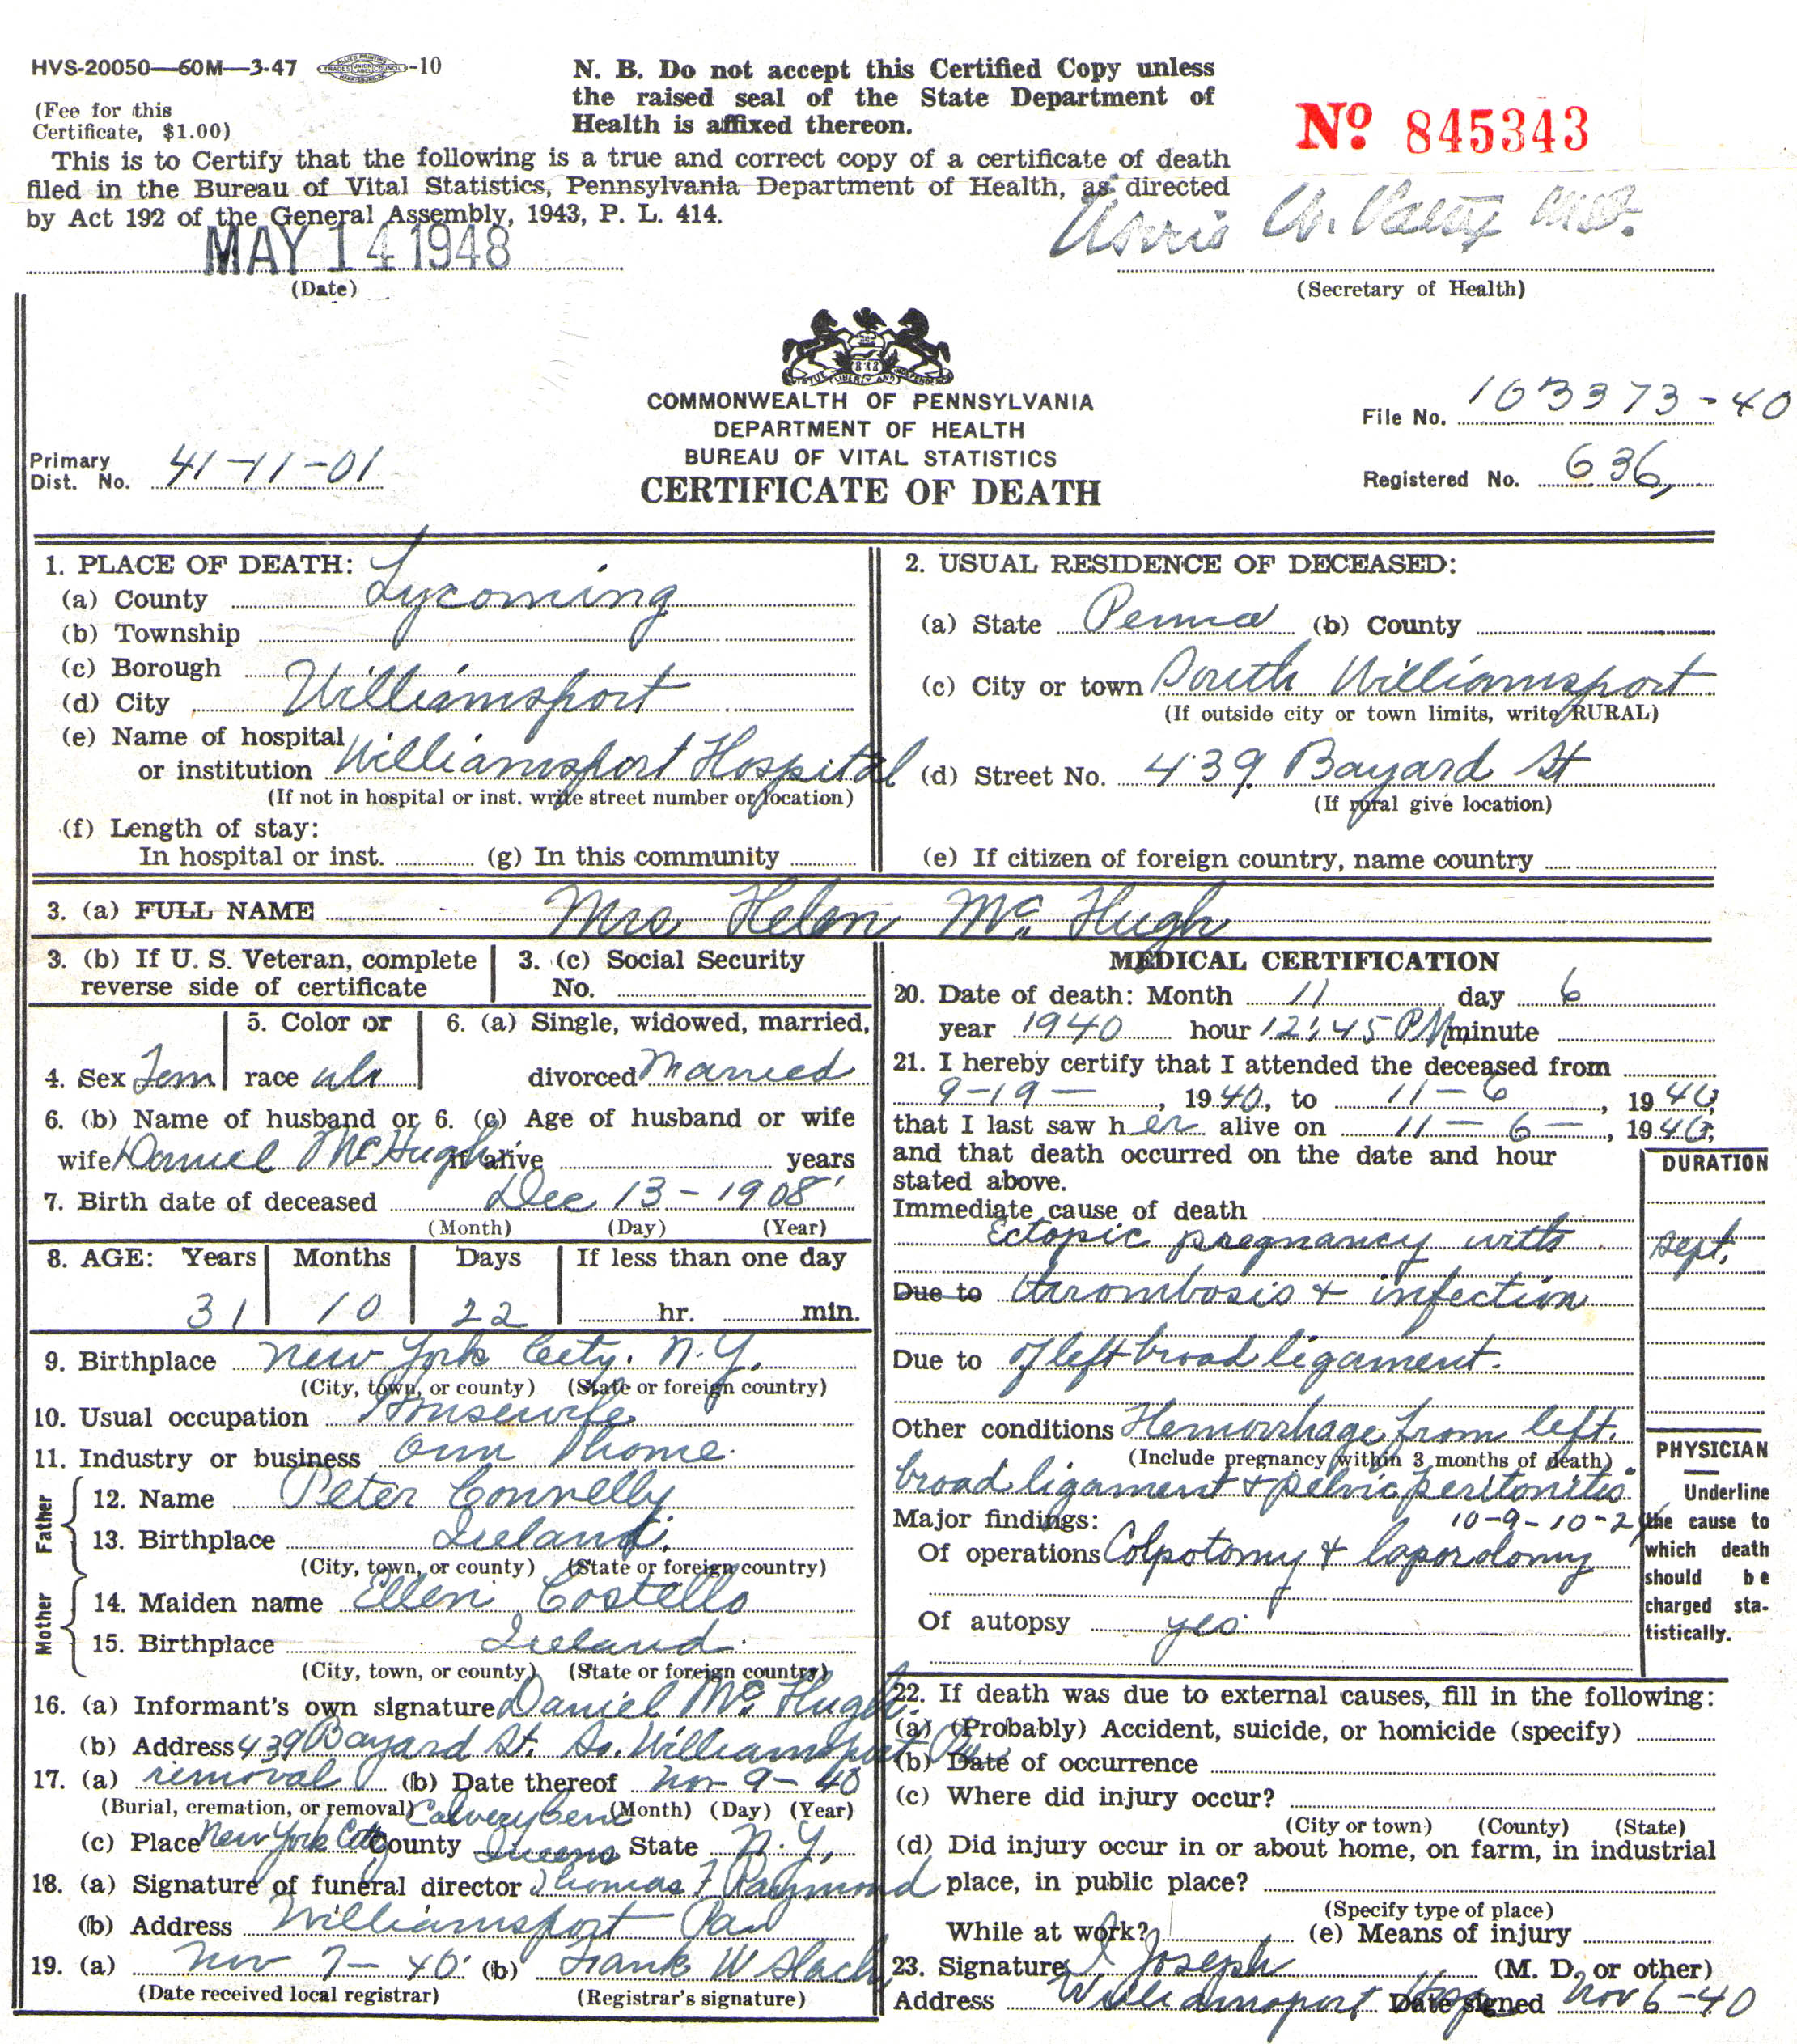 HVS-20050—60M—3-47 -10
(Fee for this
Certificate, $1.00)
N. B. Do not accept this Certified Copy unless
the raised seal of the State Department of
Health is affixed thereon.
Nº 845343
This is to Certify that the following is a true and correct copy of a certificate of death
filed in the Bureau of Vital Statistics, Pennsylvania Department of Health, as directed
by Act 192 of the General Assembly, 1943, P. L. 414.
MAY 14 1948
(Date)
(Secretary of Health)
COMMONWEALTH OF PENNSYLVANIA
DEPARTMENT OF HEALTH
BUREAU OF VITAL STATISTICS
CERTIFICATE OF DEATH
Primary
Dist. No. 41-11-01
File No. 103373-40
Registered No. 636,
1. PLACE OF DEATH:
(a) County Lycoming
(b) Township
(c) Borough
(d) City Williamsport
(e) Name of hospital
or institution Williamsport Hospital
(If not in hospital or inst. write street number or location)
(f) Length of stay:
In hospital or inst. (g) In this community
2. USUAL RESIDENCE OF DECEASED:
(a) State Penna (b) County
(c) City or town South Williamsport
(If outside city or town limits, write RURAL)
(d) Street No. 439 Bayard St
(If rural give location)
(e) If citizen of foreign country, name country
3. (a) FULL NAME Mrs Helen McHugh
3. (b) If U. S. Veteran, complete
reverse side of certificate
3. (c) Social Security
No.
4. Sex Fem
5. Color or
race wh
6. (a) Single, widowed, married,
divorced Married
6. (b) Name of husband or
wife Daniel McHugh
6. (c) Age of husband or wife
if alive years
7. Birth date of deceased Dec 13-1908
(Month) (Day) (Year)
8. AGE: Years Months Days If less than one day
31 10 22 hr. min.
9. Birthplace New York City. N.Y.
(City, town, or county) (State or foreign country)
10. Usual occupation Housewife
11. Industry or business Own Home.
Father
12. Name Peter Connelly
13. Birthplace Ireland.
(City, town, or county) (State or foreign country)
Mother
14. Maiden name Ellen Costello
15. Birthplace Ireland.
(City, town, or county) (State or foreign country)
16. (a) Informant's own signature Daniel McHugh.
(b) Address 439 Bayard St. So. Williamsport Pa
17. (a) removal (b) Date thereof Nov 9-40
(Burial, cremation, or removal) (Month) (Day) (Year)
Calvery Cem
(c) Place New York City County Queens State N.Y.
18. (a) Signature of funeral director Thomas F Raymond
(b) Address Williamsport Pa
19. (a) Nov 7-40 (b) Frank W Slack
(Date received local registrar) (Registrar's signature)
MEDICAL CERTIFICATION
20. Date of death: Month 11 day 6
year 1940 hour 12:45 PM minute
21. I hereby certify that I attended the deceased from
9-19-, 1940, to 11-6, 1940,
that I last saw her alive on 11-6-, 1940,
and that death occurred on the date and hour
stated above.
DURATION
Immediate cause of death
Ectopic pregnancy with Sept.
Due to thrombosis & infection
Due to of left broad ligament.
Other conditions Hemorrhage from left.
(Include pregnancy within 3 months of death)
broad ligament & pelvic peritonitis
Major findings: 10-9-10-2
Of operations Colpotomy & laporolomy
Of autopsy yes
PHYSICIAN
Underline
the cause to
which death
should be
charged sta-
tistically.
22. If death was due to external causes, fill in the following:
(a) (Probably) Accident, suicide, or homicide (specify)
(b) Date of occurrence
(c) Where did injury occur?
(City or town) (County) (State)
(d) Did injury occur in or about home, on farm, in industrial
place, in public place?
(Specify type of place)
While at work? (e) Means of injury
23. Signature Joseph (M. D. or other)
Address Williamsport Hosp Date signed Nov 6-40